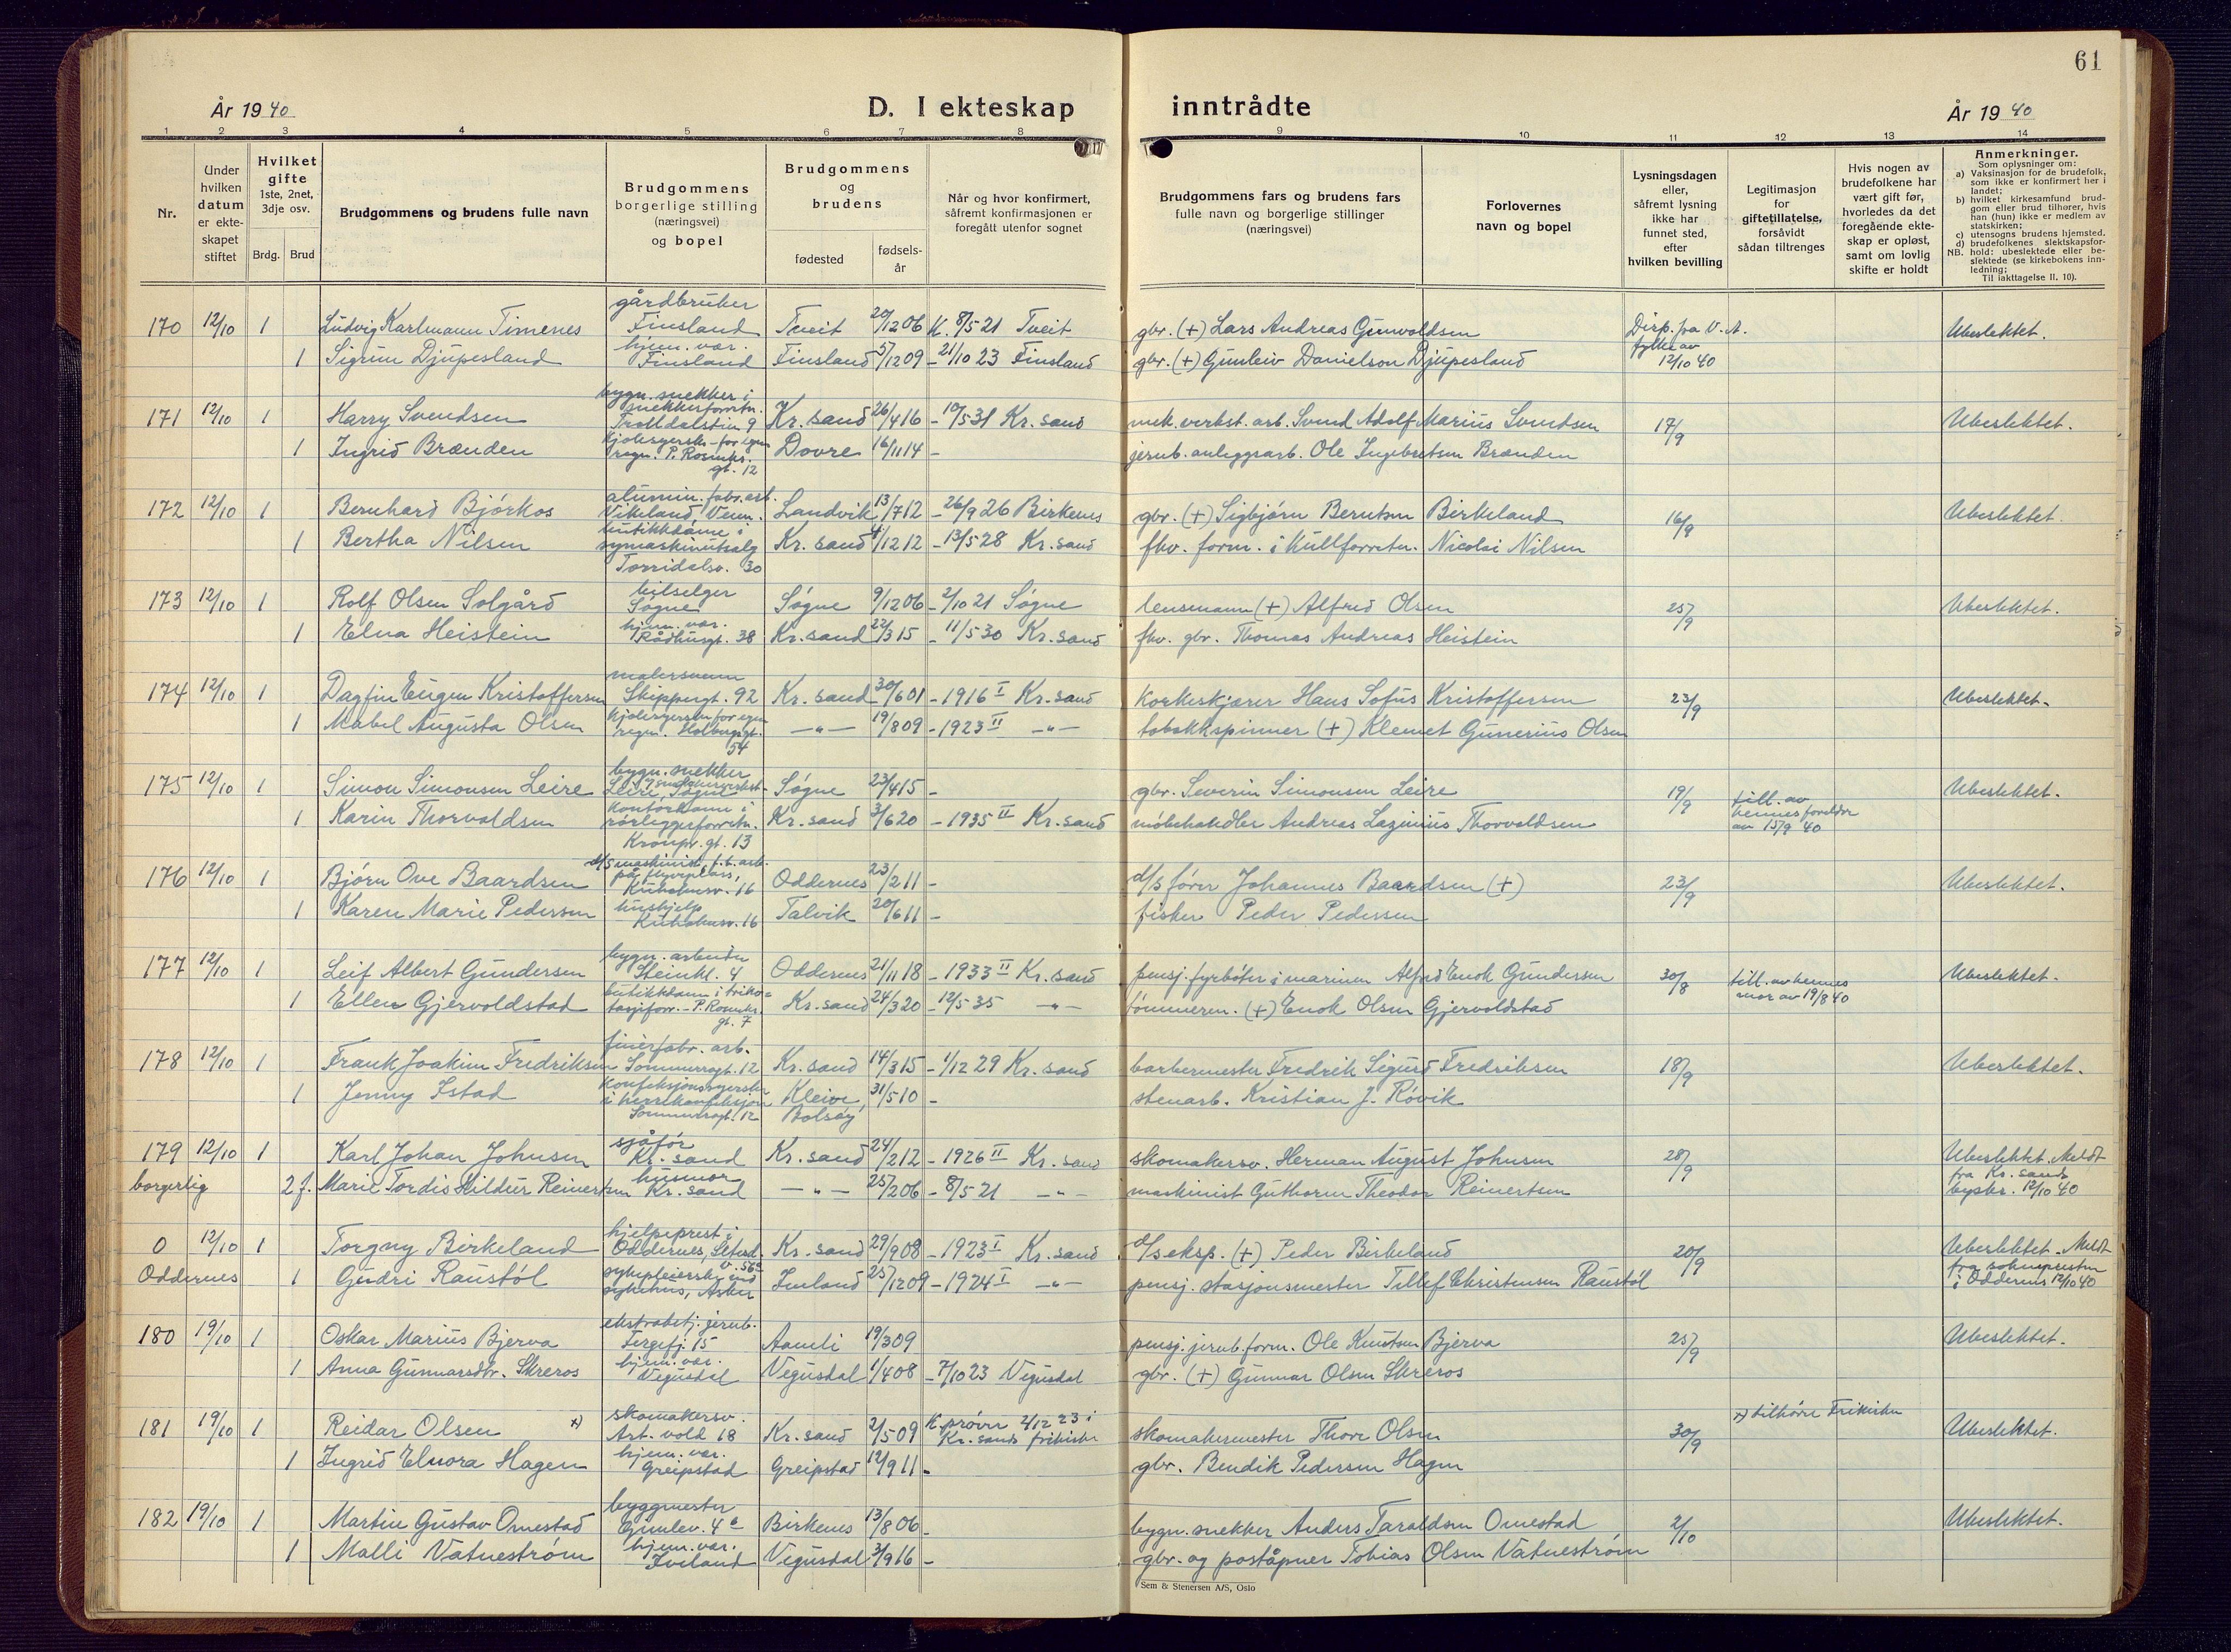 61
År 1940
D. I ekteskap inntrådte
År 1940
1 2 3 4 5 6 7 8 9 10 11 12 13 14
Nr.
Under hvilken datum er ekte-skapet stiftet
Hvilket gifte 1ste, 2net, 3dje osv.
Brdg. Brud
Brudgommens og brudens fulle navn
Brudgommens borgerlige stilling (næringsvei) og bopel
Brudgommens og brudens
fødested
fødsels-år
Når og hvor konfirmert, såfremt konfirmasjonen er foregått utenfor sognet
Brudgommens fars og brudens fars fulle navn og borgerlige stillinger (næringsvei)
Forlovernes navn og bopel
Lysningsdagen eller, såfremt lysning ikke har funnet sted, efter hvilken bevilling
Legitimasjon for giftetillatelse, forsåvidt sådan tiltrenges
Hvis nogen av brudefolkene har vært gift før, hvorledes da det foregående ekte-skap er opløst, samt om lovlig skifte er holdt
Anmerkninger.
Som oplysninger om:
a) Vaksinasjon for de brudefolk, som ikke er konfirmert her i landet;
b) hvilket kirkesamfund brud-gom eller brud tilhører, hvis han (hun) ikke er medlem av statskirken;
c) utensogns brudens hjemsted.
d) brudefolkenes slektskapsfor-
NB. hold: ubeslektede eller be-slektede (se kirkebokens inn-ledning;
Til iakttagelse II. 10).
170 12/10 1 Ludvig Karlmann Timenes gårdbruker Finsland Tveit 20/12 06 K. 8/5 21 Tveit gbr. (+) Lars Andreas Gunvaldsen Disp. fra V.A. fylke av 12/10 40 Ubeslektet.
1 Sigrun Djupesland hjem. vær. Finsland Finsland 5/12 09 - 21/10 23 Finsland gbr. (+) Gunleiv Danielson Djupesland
171 12/10 1 Harry Svendsen bygn. snekker i snekkerforretn. Trolldalstien 9 Kr. sand 26/4 16 - 10/5 31 Kr. sand mek. verkst. arb. Svend Adolf Marius Svendsen 17/9 Ubeslektet.
1 Ingrid Brænden kjolesyersk. for egen regn. P. Rosenkr. gt. 12 Dovre 16/11 14 - jernb. anleggsarb. Ole Ingebretsen Brænden
172 12/10 1 Bernhard Bjórkos alumin. fabr. arb. Vikeland, Venn. Landvik 13/7 12 - 26/9 26 Birkenes gbr. (+) Sigbjórn Berntsen Birkeland 16/9 Ubeslektet.
1 Bertha Nilsen butikkdame i symaskinutsalg Torridalsv. 30 Kr. sand 4/12 12 - 13/5 28 Kr. sand fhv. form. i kullforretn. Nicolai Nilsen
173 12/10 1 Rolf Olsen Solgård bilselger Søgne Søgne 9/12 06 - 2/10 21 Søgne lensmann (+) Alfred Olsen 25/9 Ubeslektet.
1 Elna Heistein hjem. vær. Rådhusgt. 38 Kr. sand 22/3 15 - 11/5 30 Kr. sand fhv. gbr. Thomas Andreas Heistein
174 12/10 1 Dagfin Eugen Kristoffersen malersvenn Skippergt. 92 Kr. sand 30/6 01 - 1916 I Kr. sand korkeskjærer Hans Sofus Kristoffersen 23/9 Ubeslektet.
1 Mabel Augusta Olsen kjolesyersken for egen regn. Holbergsgt. 54 -"- 19/8 09 - 1923 II -"- tobakkspinner (+) Klemet Gunerius Olsen
175 12/10 1 Simon Simonsen Leire bygn. snekker Leire, Søgne Søgne 23/4 15 - gbr. Severin Simonsen Leire 19/9 till. av hennes foreldre av 15/9 40 Ubeslektet.
1 Karin Thorvaldsen kontordame i rórleggerforretn. Kronpr. gt. 13 Kr. sand 3/6 20 - 1935 II Kr. sand móbelhandler Andreas Lazinius Thorvaldsen
176 12/10 1 Bjórn Ove Baardsen d/s maskinist, f.t. arb. på flyveplass, Kuholmsv. 16 Oddernes 23/2 11 - d/s fórer Johannes Baardsen (+) 23/9 Ubeslektet.
1 Karen Marie Pedersen hushjelp Kuholmsv. 16 Talvik 20/6 11 - fisker Peder Pedersen
177 12/10 1 Leif Albert Gundersen bygn. arbeider Steinkl. 4 Oddernes 21/11 18 - 1933 II Kr. sand pensj. fyrbóter i marinen Alfred Enok Gundersen 30/8 till. av hennes mor av 19/8 40 Ubeslektet.
1 Ellen Gjervoldstad butikkdam i triko=tasjeforr. - P. Rosenkr. gt. 7 Kr. sand 24/3 20 - 12/5 35 -"- tómmerm. (+) Enok Olsen Gjervoldstad
178 12/10 1 Frank Joakim Fredriksen finérfabr. arb. Sommerrogt. 12 Kr. sand 14/3 15 - 1/12 29 Kr. sand barbermester Fredrik Sigurd Fredriksen 18/9 Ubeslektet.
1 Jenny Istad konfeksjonssyerske i herrekonfeksjon Sommerrogt. 12 Kleive, Bolsøy 31/5 10 - stenarb. Kristian J. Róvik
179 12/10 1 Karl Johan Johnsen sjåfór Kr. sand Kr. sand 24/2 12 - 1926 II Kr. sand skomakersv. Herman August Johnsen 28/9 Ubeslektet. Meldt fra Kr. sands byskr. 12/10 40
borgerlig 2 f. Marie Tordis Hildur Reinertsen husmor Kr. sand -"- 25/2 06 - 8/5 21 -"- maskinist Guthorm Theodor Reinertsen
0 12/10 1 Torgny Birkeland hjelpeprest i Oddernes, Setesd. v. 56a Kr. sand 29/9 08 - 1923 I Kr. sand d/s eksp. (+) Peder Birkeland 20/9 Ubeslektet. Meldt fra soknepresten i Oddernes 12/10 40
Oddernes 1 Gudri Raustól sykepleierske ved sykehus, Asker Imland 25/12 09 - 1924 I -"- pensj. stasjonsmester Tellef Christensen Raustól
180 19/10 1 Oskar Marius Bjerva ekstrabetj. jernb. Fergefj. 15 Aamli 19/3 09 pensj. jernb. form. Ole Knutsen Bjerva 25/9 Ubeslektet.
1 Anna Gunnarsdtr. Skreros hjem. vær. Vegusdal Vegusdal 1/4 08 - 7/10 23 Vegusdal gbr. (+) Gunnar Olsen Skreros
181 19/10 1 Reidar Olsen x) skomakersv. Art. vold 18 Kr. sand 2/5 09 K. próven 2/12 23 i Kr. sands frikirke skomakermester Thore Olsen 30/9 x) tilhører Frikirken Ubeslektet.
1 Ingrid Elnora Hagen hjem. vær. Greipstad Greipstad 12/9 11 - gbr. Bendik Pedersen Hagen
182 19/10 1 Martin Gustav Omestad byggmester Gimlev. 4 c Birkenes 13/8 06 - bygn. snekker Anders Taraldsen Omestad 2/10 Ubeslektet.
1 Malli Vatnestróm hjem. vær. Iveland Vegusdal 3/9 16 - gbr. og poståpner Tobias Olsen Vatnestróm
Sem & Stenersen A/S, Oslo